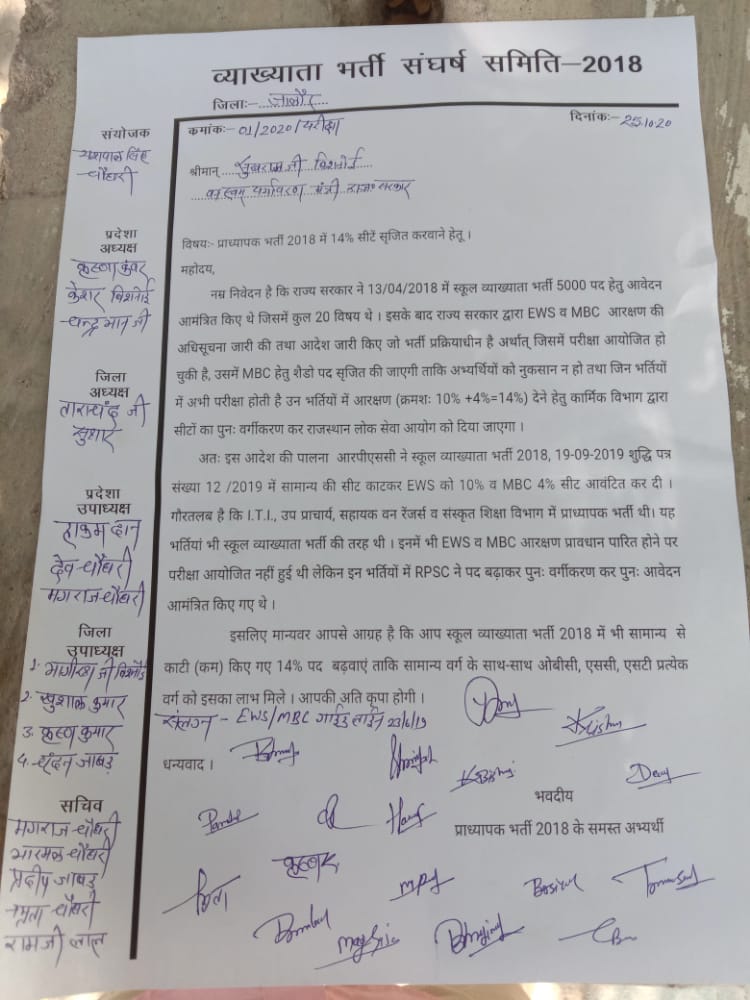 व्याख्याता भर्ती संघर्ष समिति–2018
जिलाः- जालौर
क्रमांकः- 01/2020/परीक्षा
दिनांकः- 25.10.20
श्रीमान् सुखराम जी बिश्नोई
वन एवम् पर्यावरण मंत्री राज० सरकार
विषयः- प्राध्यापक भर्ती 2018 में 14% सीटें सृजित करवाने हेतू ।
महोदय,
नम्र निवेदन है कि राज्य सरकार ने 13/04/2018 में स्कूल व्याख्याता भर्ती 5000 पद हेतु आवेदन
आमंत्रित किए थे जिसमें कुल 20 विषय थे । इसके बाद राज्य सरकार द्वारा EWS व MBC आरक्षण की
अधिसूचना जारी की तथा आदेश जारी किए जो भर्ती प्रक्रियाधीन है अर्थात् जिसमें परीक्षा आयोजित हो
चुकी है, उसमें MBC हेतु शैडो पद सृजित की जाएगी ताकि अभ्यर्थियों को नुकसान न हो तथा जिन भर्तियों
में अभी परीक्षा होती है उन भर्तियों में आरक्षण (क्रमशः 10% +4%=14%) देने हेतु कार्मिक विभाग द्वारा
सीटों का पुनः वर्गीकरण कर राजस्थान लोक सेवा आयोग को दिया जाएगा ।
अतः इस आदेश की पालना आरपीएससी ने स्कूल व्याख्याता भर्ती 2018, 19-09-2019 शुद्धि पत्र
संख्या 12 /2019 में सामान्य की सीट काटकर EWS को 10% व MBC 4% सीट आवंटित कर दी ।
गौरतलब है कि I.T.I., उप प्राचार्य, सहायक वन रेंजर्स व संस्कृत शिक्षा विभाग में प्राध्यापक भर्ती थी। यह
भर्तियां भी स्कूल व्याख्याता भर्ती की तरह थी । इनमें भी EWS व MBC आरक्षण प्रावधान पारित होने पर
परीक्षा आयोजित नहीं हुई थी लेकिन इन भर्तियों में RPSC ने पद बढ़ाकर पुनः वर्गीकरण कर पुनः आवेदन
आमंत्रित किए गए थे ।
इसलिए मान्यवर आपसे आग्रह है कि आप स्कूल व्याख्याता भर्ती 2018 में भी सामान्य से
काटी (कम) किए गए 14% पद बढ़वाएं ताकि सामान्य वर्ग के साथ-साथ ओबीसी, एससी, एसटी प्रत्येक
वर्ग को इसका लाभ मिले । आपकी अति कृपा होगी ।
संलग्न - EWS/MBC गाईड लाईन 23/6/19
धन्यवाद ।
भवदीय
प्राध्यापक भर्ती 2018 के समस्त अभ्यर्थी
संयोजक
यशपाल सिंह
चौधरी
प्रदेशा
अध्यक्ष
कृष्णा कुंवर
केशर बिश्नोई
चन्द्रभान जी
जिला
अध्यक्ष
ताराचंद जी
सुथार
प्रदेशा
उपाध्यक्ष
हाकम दान
देव चौधरी
मगराज चौधरी
जिला
उपाध्यक्ष
1. भागीरथ जी बिश्नोई
2. खुशाल कुमार
3. कृष्ण कुमार
4. चंदन जाखड़
सचिव
मगराज चौधरी
भारमल चौधरी
प्रदीप जाखड़
चौधरी
रामजी लाल